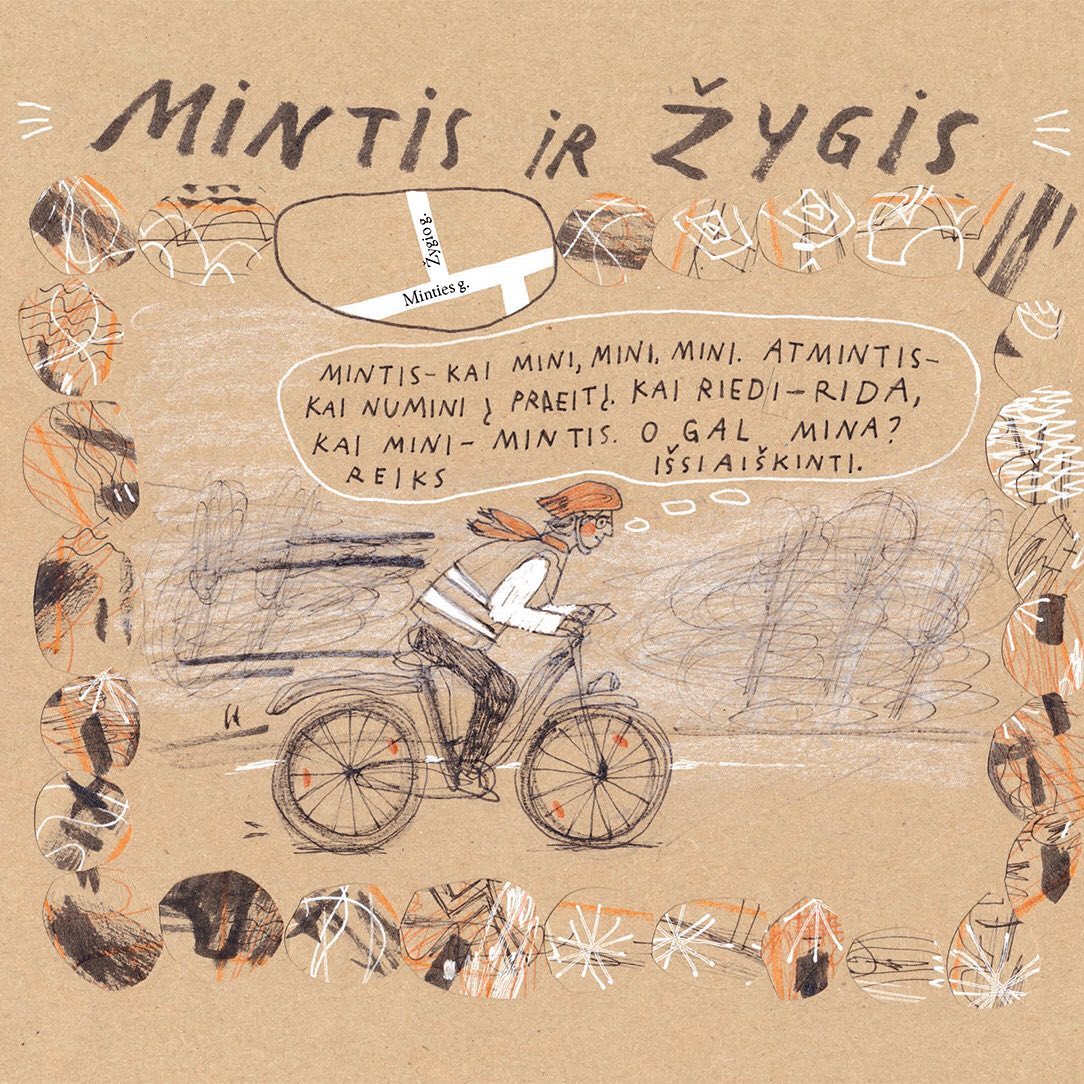 MINTIS IR ŽYGIS
Žygio g.
Minties g.
MINTIS – KAI MINI, MINI, MINI. ATMINTIS –
KAI NUMINI Į PRAEITĮ. KAI RIEDI – RIDA,
KAI MINI – MINTIS. O GAL MINA?
REIKS IŠSIAIŠKINTI.